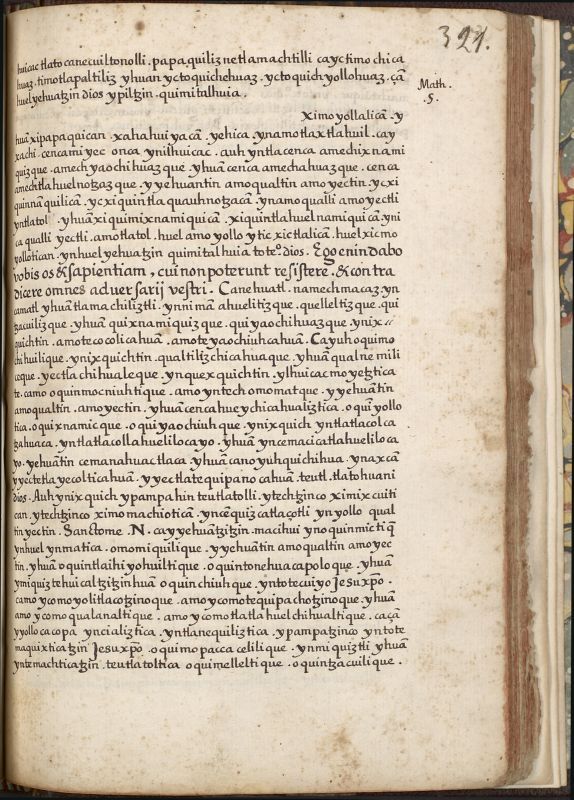 321.
huicac tlatocanecuiltonolli. papaquiliz netlamachtilli cayctimochica
huaz. timotlapaltiliz yhuan yctoquichehuaz. yctoquichyollohuaz. çã
huelyehuatzin dios ypiltzin. quimitalhuia.
Math.
.5.
Ximoyollalicã. y
huã xipapaquican. xahahuiyacã. yehica. ynamotlaxtlahuil. cay
xachi. cencamiyec onca ynilhuicac. auh yntlacenca amechixnami
quizque. amechyaochihuazque. yhuã cenca amechahuazque. cenca
amechtlahuelnotzazque. yyehuantin amoqualtin amoyectin. ycxi
quinnãquilicã. ycxiquintlaquauhnotzacã. ynamoqualli amoyectli
yntlatol. yhuã xiquimixnamiquicã. xiquintlahuelnamiquicã yni
ca qualli yectli. amotlatol. huel amoyolloytic xictlalicã. huelxicmo
yollotican. ynhuelyehuatzin quimitalhuia toteº dios. Ego enim dabo
vobis os & sapientiam, cui non poterunt resistere. & contra
dicere omnes adversarij vestri. Canehuatl. namechmacaz. yn
camatl yhuã tlamachiliztli. ynnimã ahuelitizque. quelleltizque. qui
tzacuilizque. yhuã quixnamiquizque. quiyaochihuazque. ynix//
quichtin. amotecocolicahuã. amoteyaochiuhcahuã. Cayuhoquimo
chihuilique. ynixquichtin. qualtiliz chicahuaque. yhuã qualnemili
ceque. yectlachihualeque. ynquexquichtin. ylhuicacmoyetztica
te. camo oquinmocniuhtique. amo yntech omomatque. yyehuãtin
amoqualtin. amoyectin. yhuã cencahueychicahualiztica. oquiyollo
tica. oquixnamicque. oquiyaochiuhque. ynixquich yntlatlacolca
tzahuaca. yntlatlacollahuelilocayo. yhuã yncemacicatlahueliloca
yo. yehuãtin cemanahuactlaca. yhuã cano yuhquichihua. ynaxcã
yyectetlayecolticahuã. yyectlatequipanocahuã. teutl. tlatohuani
dios. Auhynixquich ypampa hin teutlatolli. ytechtzinco ximixcuiti
can. ytechtzinco ximomachioticã. yncẽquizcatlaçotli ynyollo qual
tin yectin. Sanctome. N. cayyehuãtzitzin. macihui ynoquinmicti q̃
ynhuel ynmatica. omomiquilique. yyehuãtin amoqualtin amoyec
tin. yhuã oquintlaihiyohuiltique. oquintonehuacapoloque. yhuã
ymiquiztehuicaltzitzinhuã oquinchiuhque. yntotecuiyo Jesu xpõ.
camo ycomoyolitlacotzinoque. amo ycomotequipachotzinoque. yhuã
amo ycomoqualanaltique. amo ycomotlatlahuelchihualtique. caçã
yyollocacopa yncializtica. yntlanequiliztica. ypampatzinco yntote
maquixticatzin Jesu xpõ. oquimopaccacelilique. ynmiquiztli yhuã
yntemachticatzin. teutlatoltica oquimelleltique. oquintzacuilique.